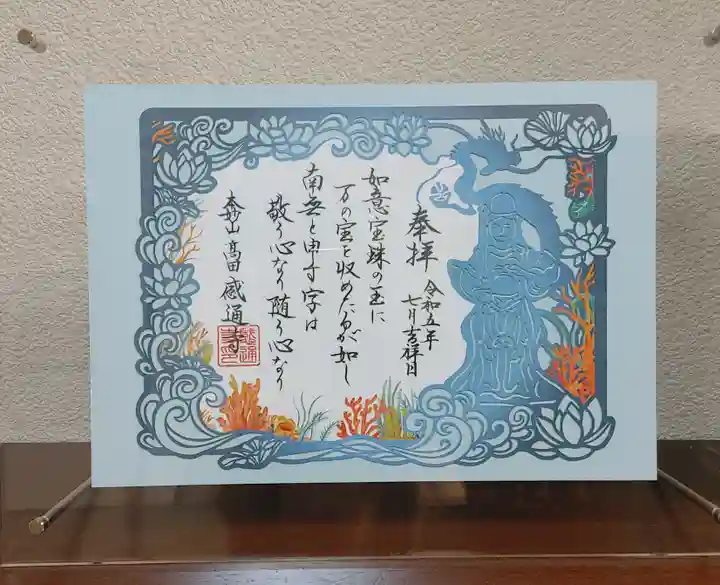 奉拝
令和五年
七月吉祥日
如意宝珠の玉に
万の宝を収めたるが如し
南無と申す字は
敬う心なり随う心なり
本妙山 高田 感通寺